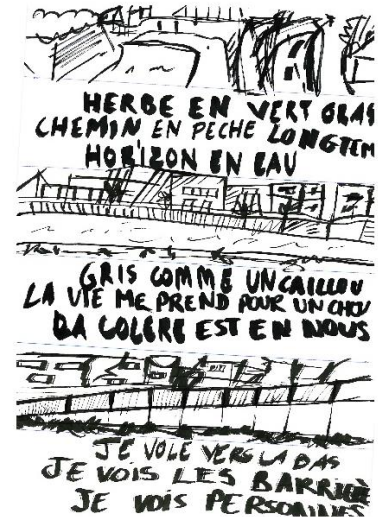 HERBE EN VERT GRAS
CHEMIN EN PECHE LONGTEM
HORIZON EN EAU
GRIS COMME UN CAILLOU
LA VIE ME PREND POUR UN CHOU
LA COLERE EST EN NOUS
JE VOLE VERS LA BAS
JE VOIS LES BARRIÈ
JE VOIS PERSONNES